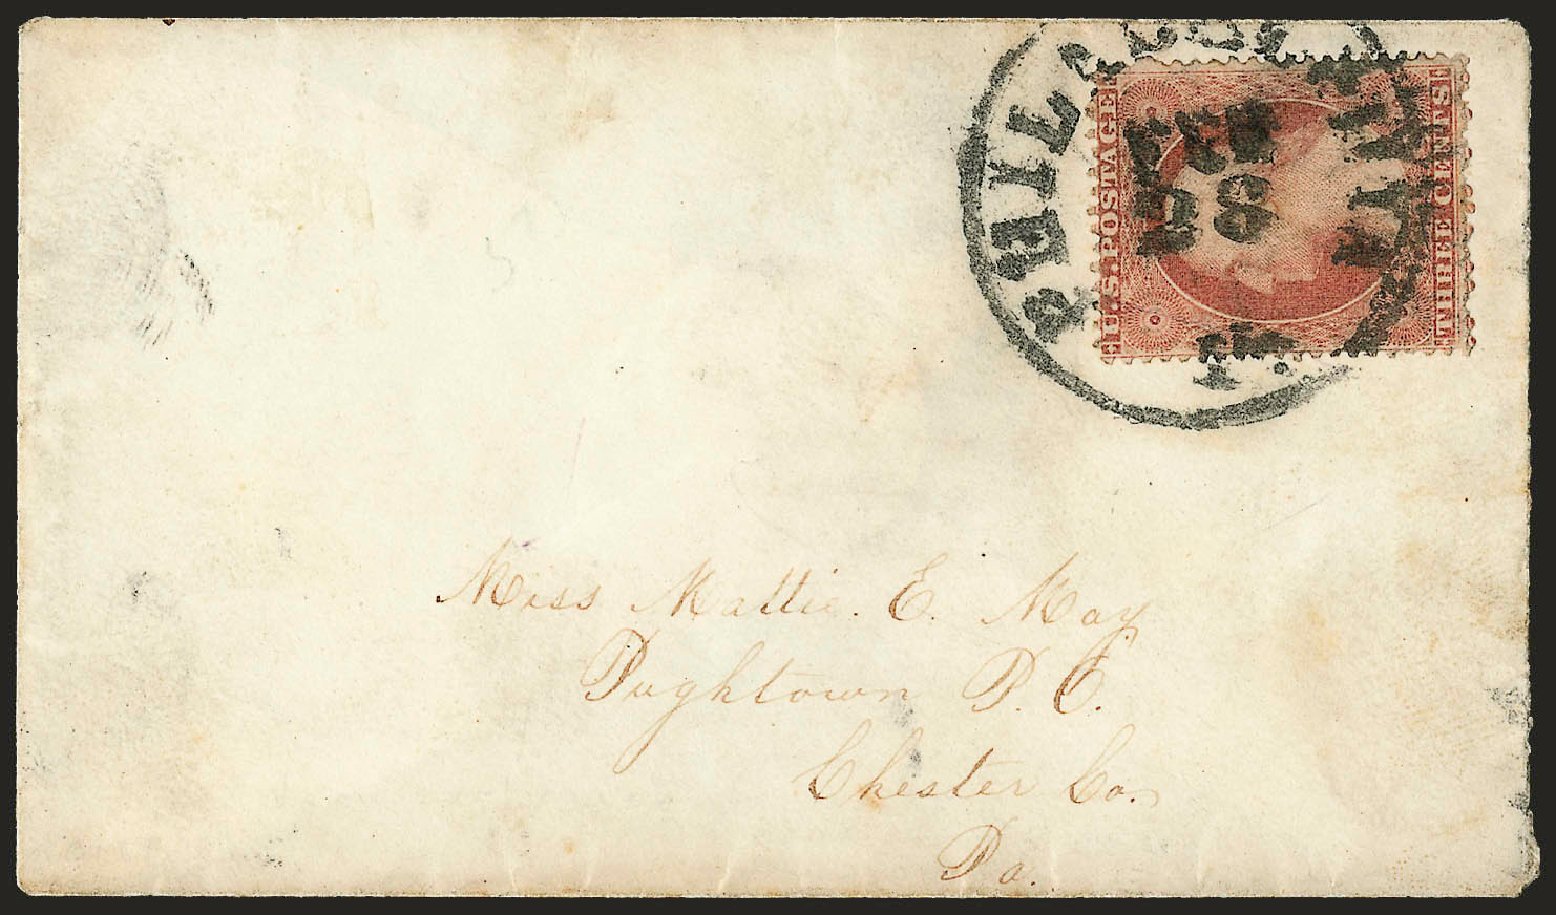 PHILADEL
U.S. POSTAGE
THREE CENTS
Miss Mattie. E. May
Pughtown P. O.
Chester Co.
Pa.